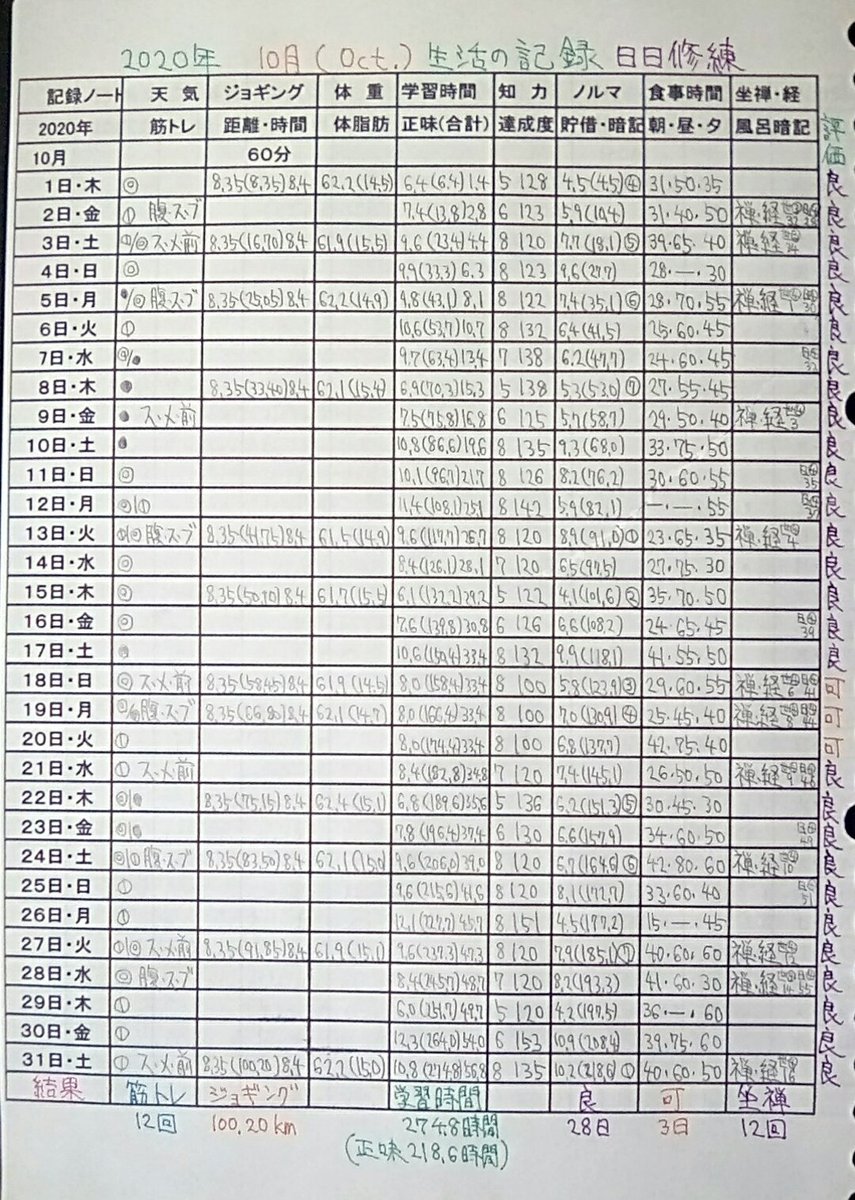 2020年 10月(Oct.) 生活の記録 日日修練
記録ノート 天気 ジョギング 体重 学習時間 知力 ノルマ 食事時間 坐禅・経
2020年 筋トレ 距離・時間 体脂肪 正味(合計) 達成度 貯借・暗記 朝・昼・夕 風呂暗記 評価
10月 60分
1日・木 ◎ 8.35(8.35)8.4 62.2(14.5) 6.4(6.4)1.4 5 128 4.5(4.5)④ 31・50・35 良
2日・金 ① 腹・スブ 7.4(13.8)2.8 6 123 5.9(10.4) 31・40・50 禅・経 良
3日・土 ①/◎ス・メ前 8.35(16.70)8.4 61.9(15.5) 9.6(23.4)4.4 8 120 7.7(18.1)⑤ 39・65・40 禅・経 良
4日・日 ◎ 9.9(33.3)6.3 8 123 9.6(27.7) 28・ー・30 良
5日・月 ●/◎腹・スブ 8.35(25.05)8.4 62.2(14.9) 9.8(43.1)8.1 8 122 7.4(35.1)⑥ 28・70・55 禅・経 良
6日・火 ① 10.6(53.7)10.7 8 132 6.4(41.5) 25・60・45 良
7日・水 ◎/● 9.7(63.4)13.4 7 138 6.2(47.7) 24・60・45 良
8日・木 ● 8.35(33.40)8.4 62.1(15.4) 6.9(70.3)15.3 5 138 5.3(53.0)⑦ 27・55・45 良
9日・金 ● ス・メ前 7.5(75.8)16.8 6 125 5.7(58.7) 29・50・40 禅・経 良
10日・土 ● 10.8(86.6)19.6 8 135 9.3(68.0) 33・75・50 良
11日・日 ◎ 10.1(96.7)21.7 8 126 8.2(76.2) 30・60・55 良
12日・月 ◎① 11.4(108.1)25.1 8 142 5.9(82.1) ー・ー・55 良
13日・火 ①/◎ 腹・スブ 8.35(41.75)8.4 61.5(14.9) 9.6(117.7)26.7 8 120 8.9(91.0)① 23・65・35 禅・経 良
14日・水 ◎ 8.4(126.1)28.1 7 120 6.5(97.5) 27・75・30 良
15日・木 ◎ 8.35(50.10)8.4 61.7(15.5) 6.1(132.2)29.2 5 122 4.1(101.6)② 35・70・50 良
16日・金 ◎ 7.6(139.8)30.8 6 126 6.6(108.2) 24・65・45 良
17日・土 ● 10.6(150.4)33.4 8 132 9.9(118.1) 41・55・50 良
18日・日 ◎ ス・メ前 8.35(58.45)8.4 61.9(14.5) 8.0(158.4)33.4 8 100 5.8(123.9)③ 29・60・55 禅・経 可
19日・月 腹・スブ 8.35(66.80)8.4 62.1(14.7) 8.0(166.4)33.4 8 100 7.0(130.9)④ 25・45・40 禅・経 可
20日・火 ① 8.0(174.4)33.4 8 100 6.8(137.7) 42・75・40 可
21日・水 ① ス・メ前 8.4(182.8)34.8 7 120 7.4(145.1) 26・50・50 禅・経 良
22日・木 ◎/● 8.35(75.15)8.4 62.4(15.1) 6.8(189.6)35.6 5 136 6.2(151.3)⑤ 30・45・30 良
23日・金 ◎/● 7.8(196.4)37.4 6 130 6.6(157.9) 34・60・50 良
24日・土 ◎① 腹・スブ 8.35(83.50)8.4 62.1(15.0) 9.6(206.0)39.0 8 120 6.7(164.6)⑥ 42・80・60 禅・経 良
25日・日 ① 9.6(215.6)41.6 8 120 8.1(172.7) 33・60・40 良
26日・月 ① 12.1(227.7)45.7 8 151 4.5(177.2) 15・ー・45 良
27日・火 ①/◎ ス・メ前 8.35(91.85)8.4 61.9(15.1) 9.6(237.3)47.3 8 120 7.9(185.1)⑦ 40・60・60 禅・経 良
28日・水 ◎ 腹・スブ 8.4(245.7)48.7 7 120 8.2(193.3) 41・60・30 禅・経 良
29日・木 ① 6.0(251.7)49.7 5 120 4.2(197.5) 36・ー・60 良
30日・金 ① 12.3(264.0)54.0 6 153 10.9(208.4) 39・75・60 良
31日・土 ① ス・メ前 8.35(100.20)8.4 62.2(15.0) 10.8(274.8)56.8 8 135 10.2(218.6)① 40・60・50 禅・経 良
結果 筋トレ ジョギング 学習時間 良 可 坐禅
12回 100.20km 274.8時間 28日 3日 12回
(正味218.6時間)